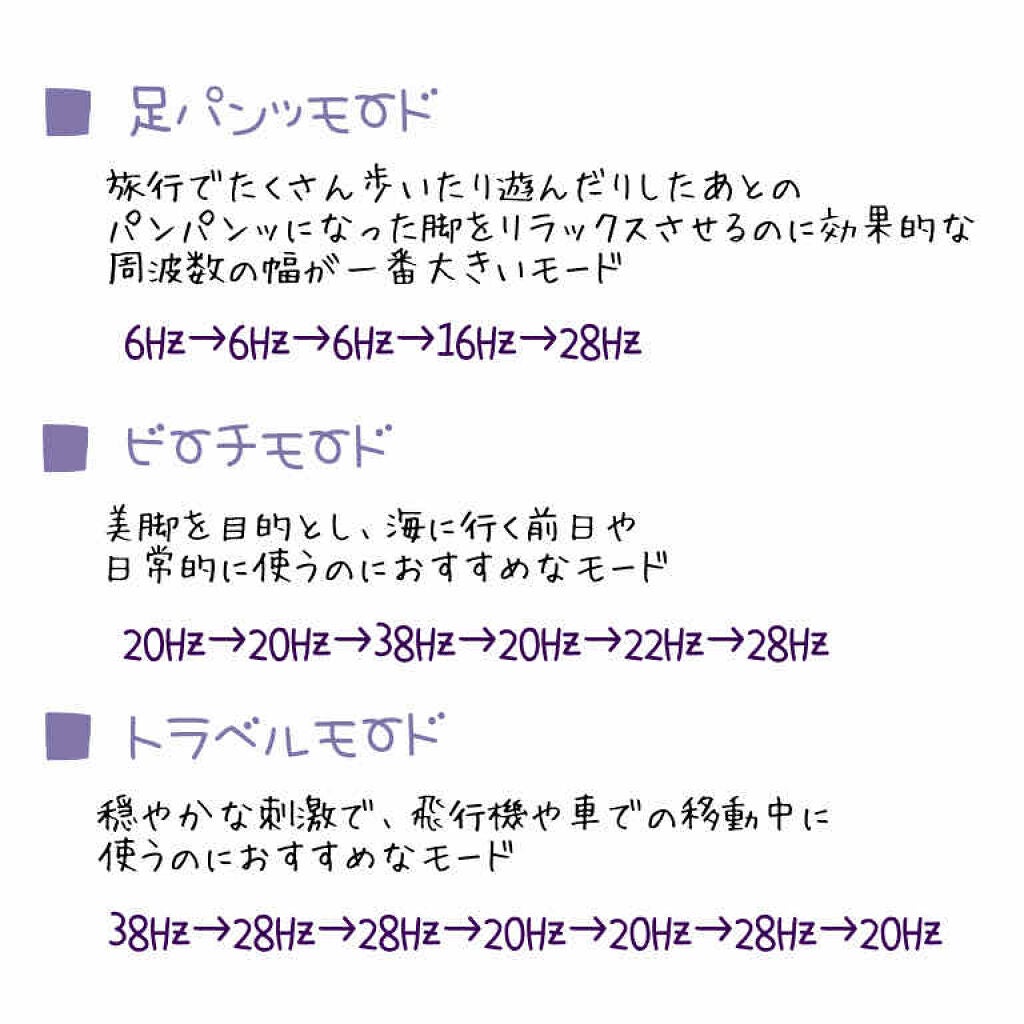 ■ 足パンツモード
旅行でたくさん歩いたり遊んだりしたあとの
パンパンッになった脚をリラックスさせるのに効果的な
周波数の幅が一番大きいモード
6Hz→6Hz→6Hz→16Hz→28Hz
■ ビーチモード
美脚を目的とし、海に行く前日や
日常的に使うのにおすすめなモード
20Hz→20Hz→38Hz→20Hz→22Hz→28Hz
■ トラベルモード
穏やかな刺激で、飛行機や車での移動中に
使うのにおすすめなモード
38Hz→28Hz→28Hz→20Hz→20Hz→28Hz→20Hz